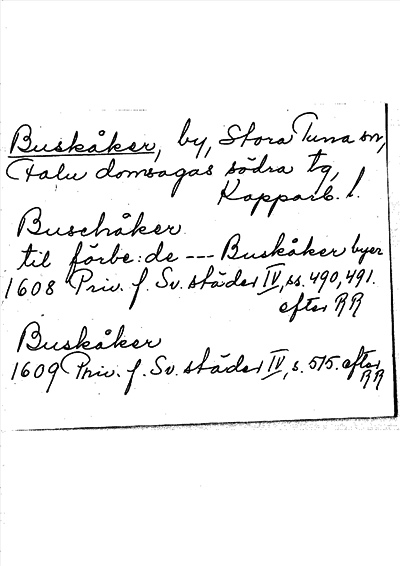 Buskåker, by, Stora Tuna sn,
Falu domsagas södra tg,
Kopparb. l.
Buschåker
til förbe:de --- Buskåker byer
1608 Priv. f. Sv. städer IV, ss. 490, 491.
efter RR
Buskåker
1609 Priv. f. Sv. städer IV, s. 515. efter
RR